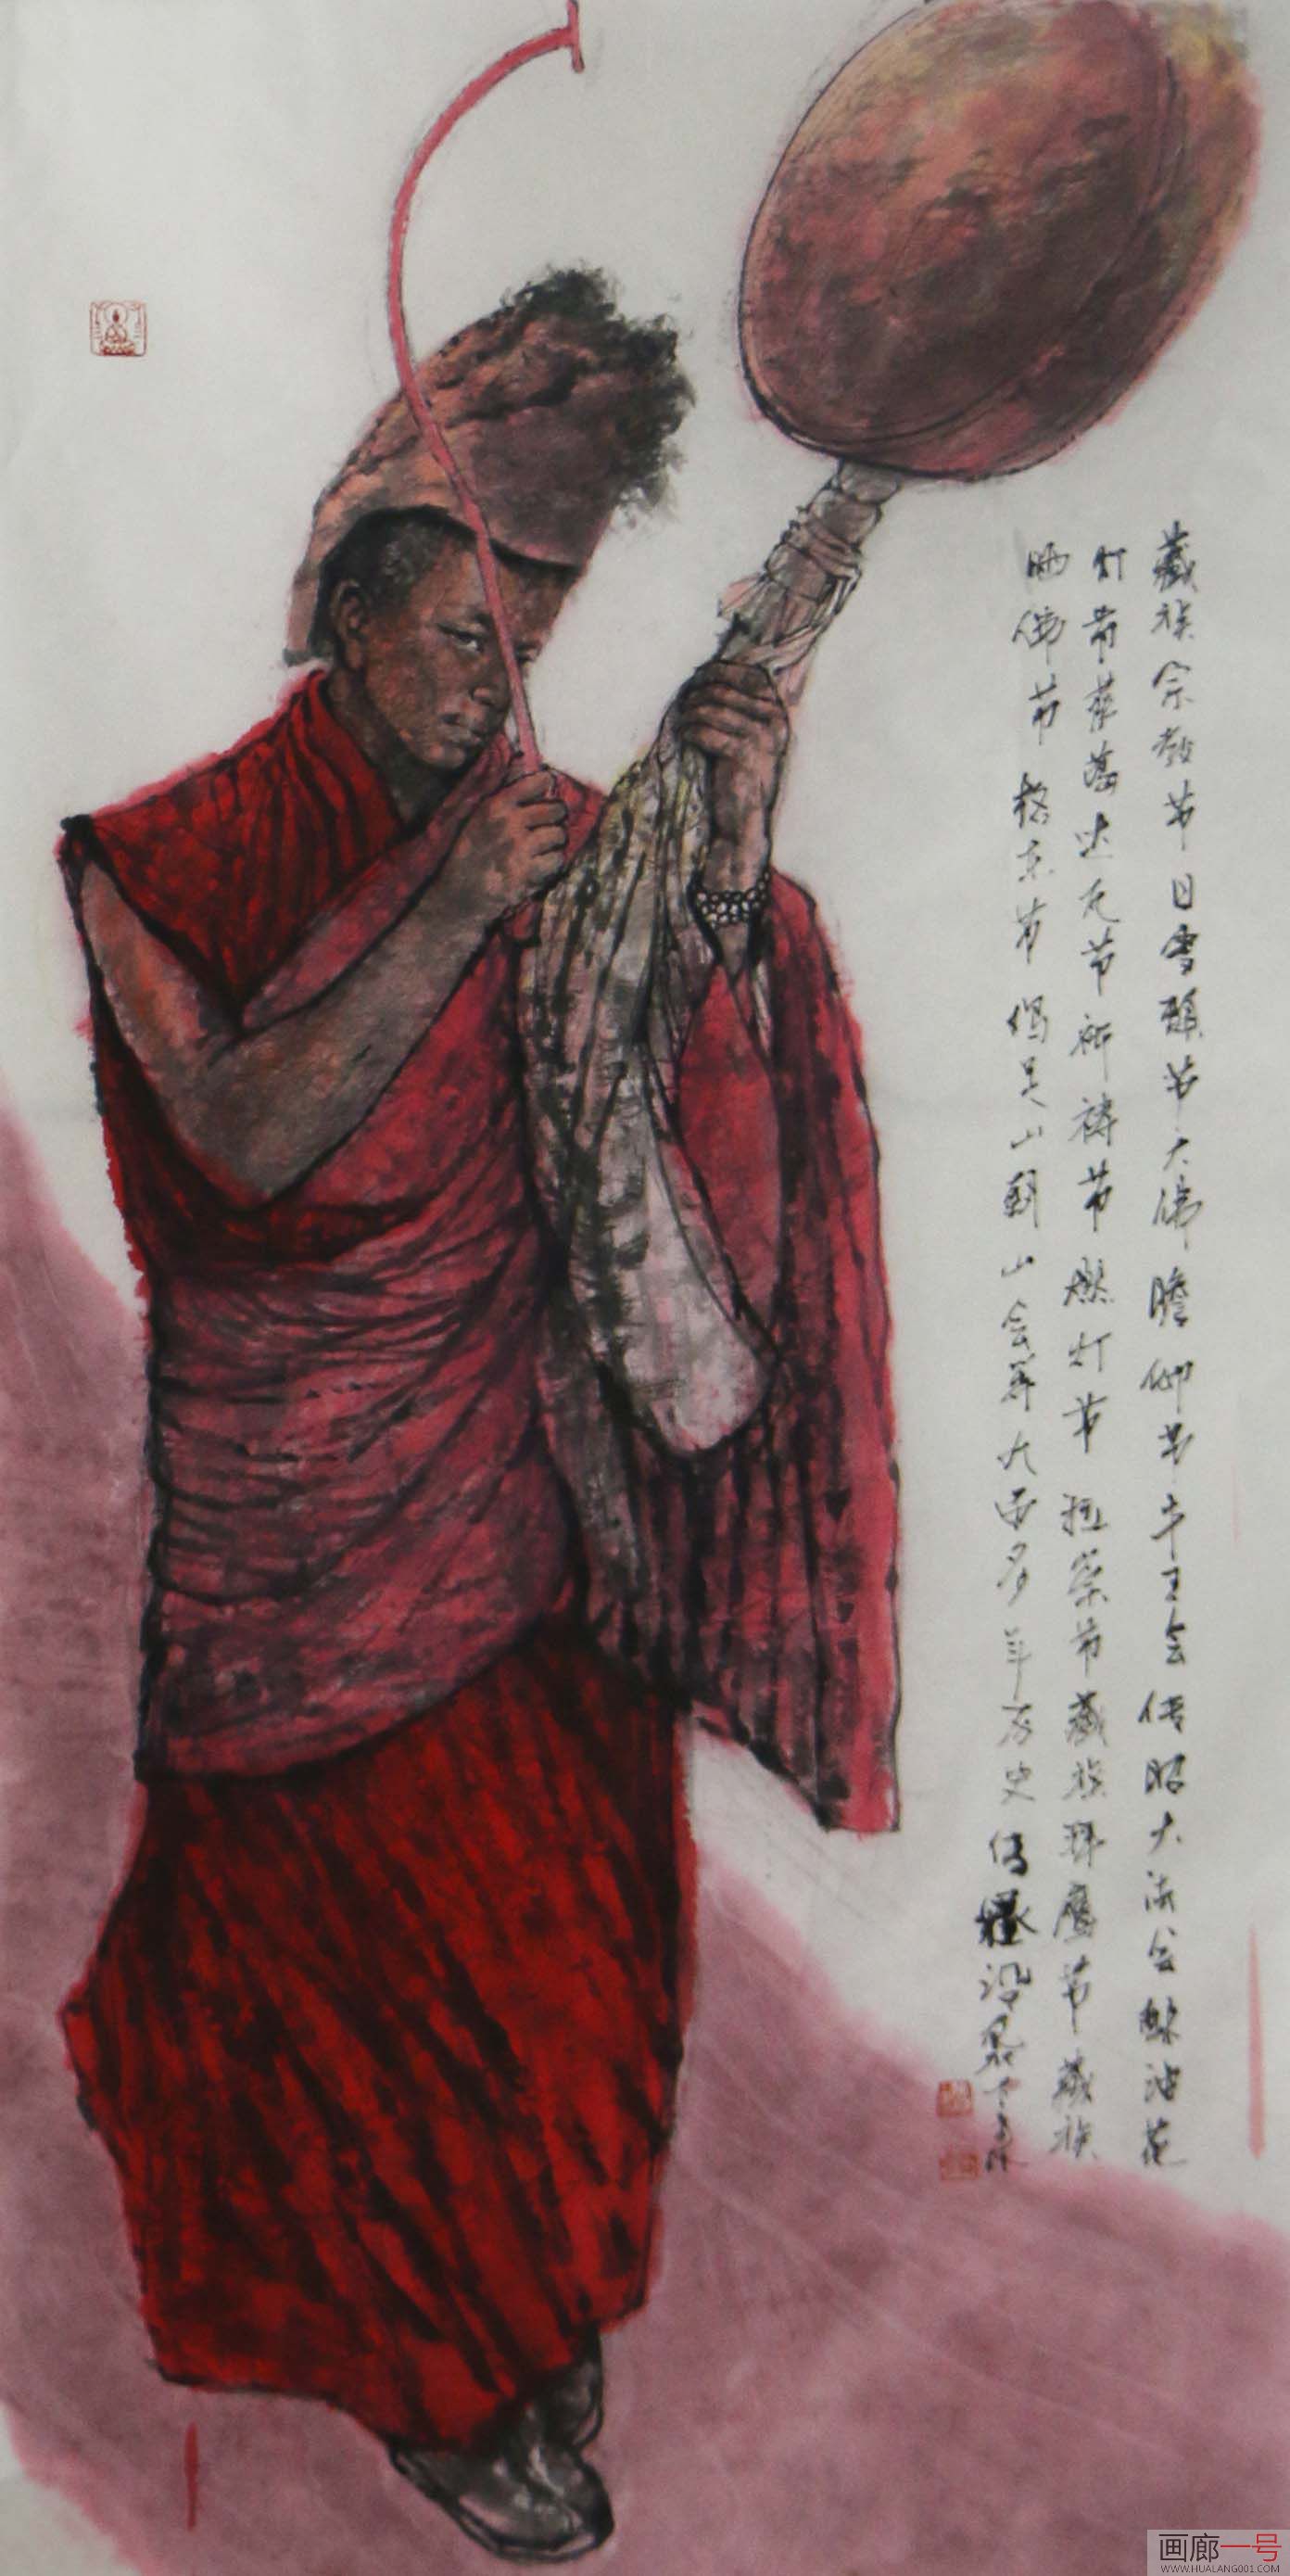 藏族宗教节日雪顿节大佛瞻仰节牛王会传昭大法会酥油花
灯节萨葛达瓦节祈祷节燃灯节 节藏族拜鹰节藏族
晒佛节 节 足山朝山会等大 多年历史传
画廊一号
WWW.HUALANG001.COM